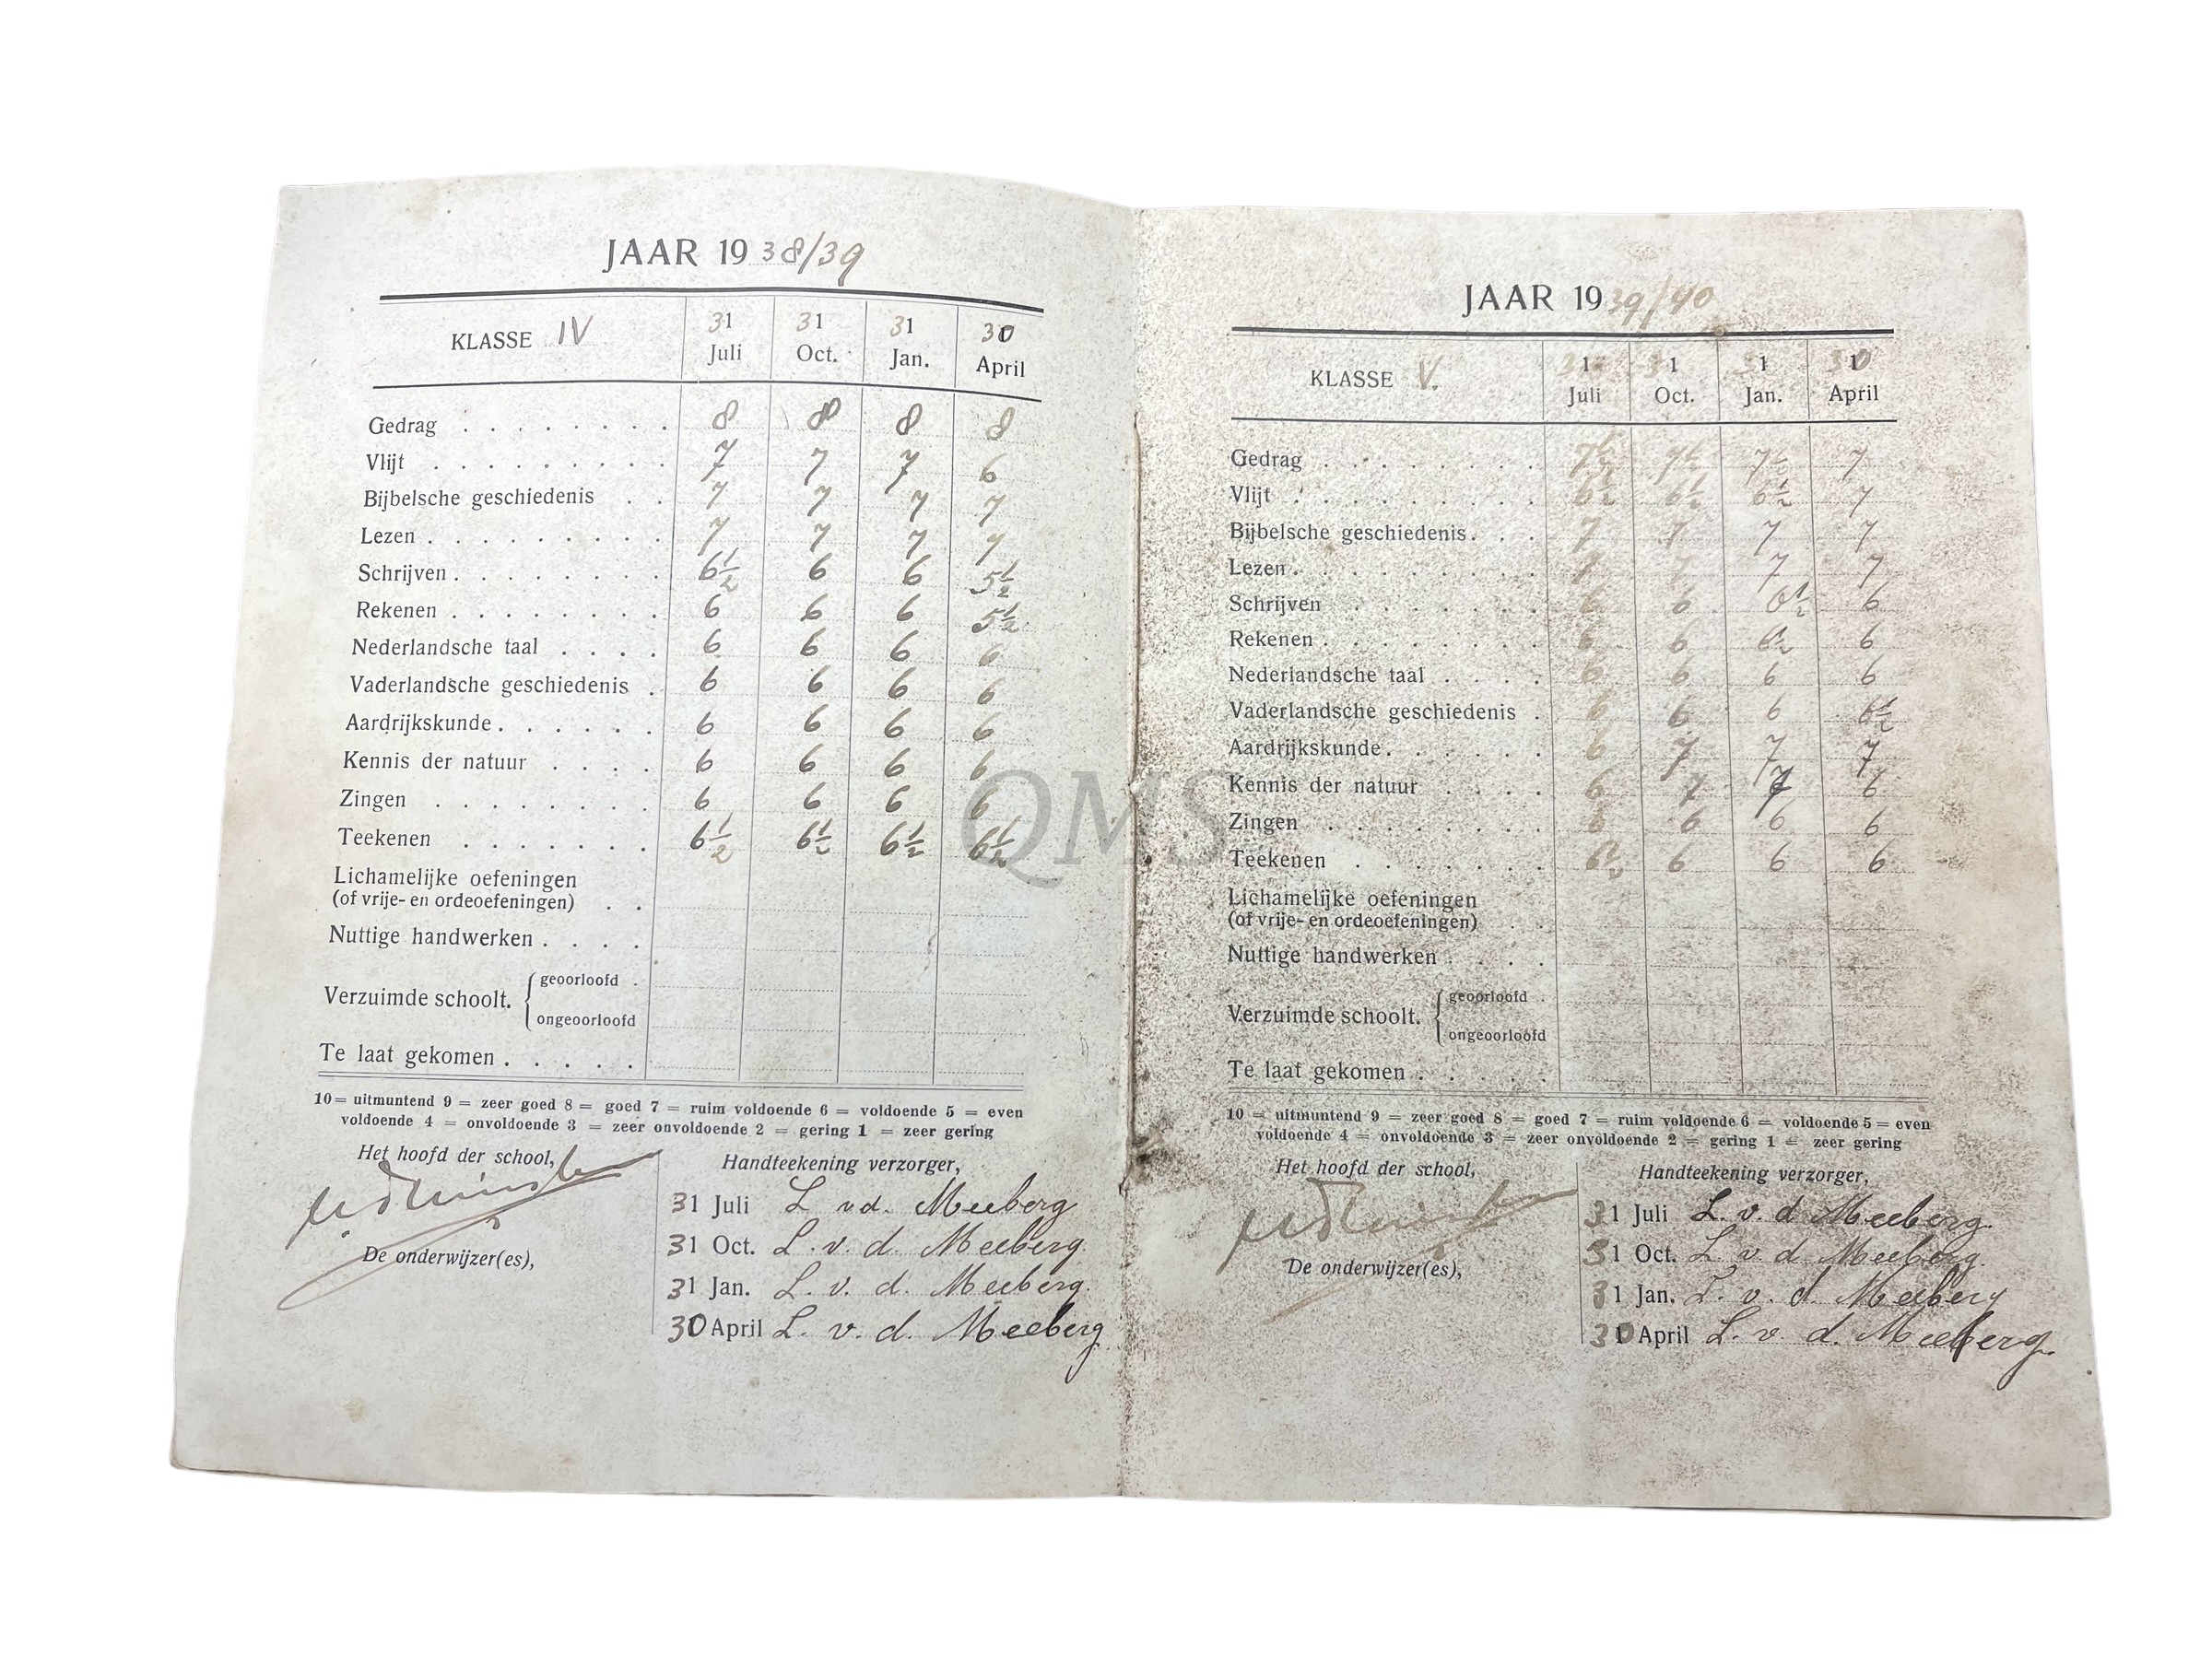 JAAR 19 38/39
KLASSE IV 31 Juli 31 Oct. 31 Jan. 30 April
Gedrag . . . . . . . . 8 8 8 8
Vlijt . . . . . . . . . 7 7 7 6
Bijbelsche geschiedenis . . 7 7 7 7
Lezen . . . . . . . . . 7 7 7 7
Schrijven . . . . . . . . 6½ 6 6 5½
Rekenen . . . . . . . . 6 6 6 5½
Nederlandsche taal . . . . 6 6 6 6
Vaderlandsche geschiedenis . 6 6 6 6
Aardrijkskunde . . . . . . 6 6 6 6
Kennis der natuur . . . . 6 6 6 6
Zingen . . . . . . . . 6 6 6 6
Teekenen . . . . . . . 6½ 6½ 6½ 6½
Lichamelijke oefeningen
(of vrije- en ordeoefeningen) . .
Nuttige handwerken . . . .
Verzuimde schoolt. { geoorloofd .
ongeoorloofd
Te laat gekomen . . . . .
10 = uitmuntend 9 = zeer goed 8 = goed 7 = ruim voldoende 6 = voldoende 5 = even
voldoende 4 = onvoldoende 3 = zeer onvoldoende 2 = gering 1 = zeer gering
Het hoofd der school,
De onderwijzer(es),
Handteekening verzorger,
31 Juli L vd. Meeberg
31 Oct. L. v. d. Meeberg.
31 Jan. L. v. d. Meeberg.
30 April L. v. d. Meeberg
QMS
JAAR 19 39/40
KLASSE V. 31 Juli 31 Oct. 31 Jan. 30 April
Gedrag . . . . . . . . 7½ 7½ 7½ 7
Vlijt . . . . . . . . . 6½ 6½ 6½ 7
Bijbelsche geschiedenis . . . 7 7 7 7
Lezen . . . . . . . . . 7 7 7 7
Schrijven . . . . . . . 6 6 6½ 6
Rekenen . . . . . . . . 6 6 6½ 6
Nederlandsche taal . . . . 6 6 6 6
Vaderlandsche geschiedenis . 6 6 6 6½
Aardrijkskunde . . . . . . 6 7 7 7
Kennis der natuur . . . . 6 7 7 6
Zingen . . . . . . . . 6 6 6 6
Teekenen . . . . . . . 6½ 6 6 6
Lichamelijke oefeningen
(of vrije- en ordeoefeningen) . .
Nuttige handwerken . . . .
Verzuimde schoolt. { geoorloofd .
ongeoorloofd
Te laat gekomen . . . . .
10 = uitmuntend 9 = zeer goed 8 = goed 7 = ruim voldoende 6 = voldoende 5 = even
voldoende 4 = onvoldoende 3 = zeer onvoldoende 2 = gering 1 = zeer gering
Het hoofd der school,
De onderwijzer(es),
Handteekening verzorger,
31 Juli L. v. d Meeberg.
31 Oct. L. v. d Meeberg.
31 Jan. L. v. d. Meeberg
30 April L. v. d. Meeberg.